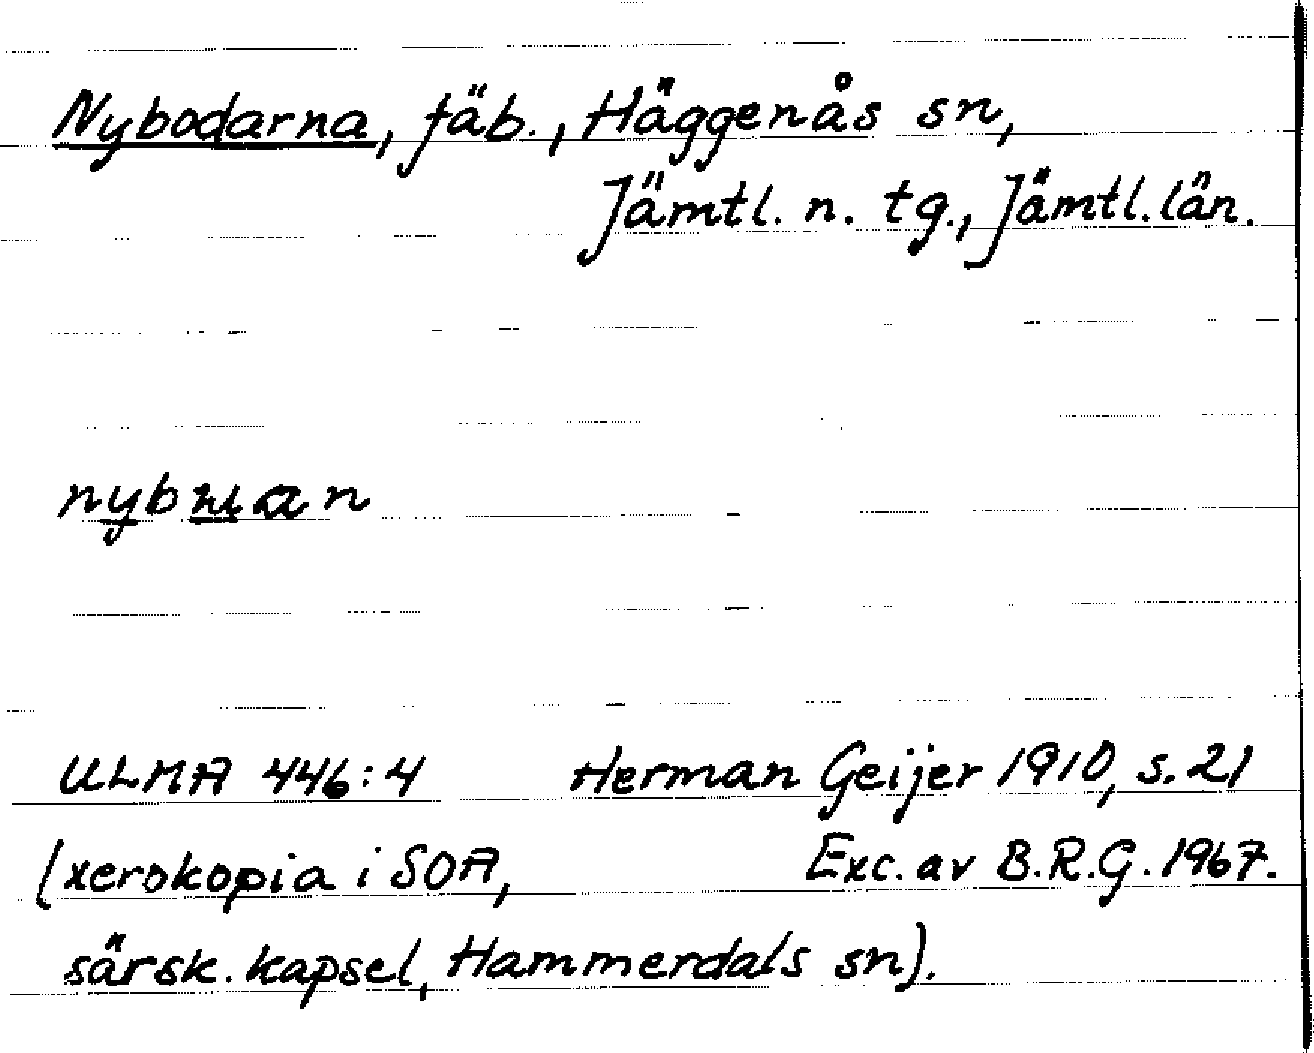 Nybodarna, fäb., Häggenås sn,
Jämtl. n. tg., Jämtl. län.
ULMA 446:4 Herman Geijer 1910, s. 21
(xerokopia i SOA, Exc. av B.R.G. 1967.
särsk. kapsel, Hammerdals sn).